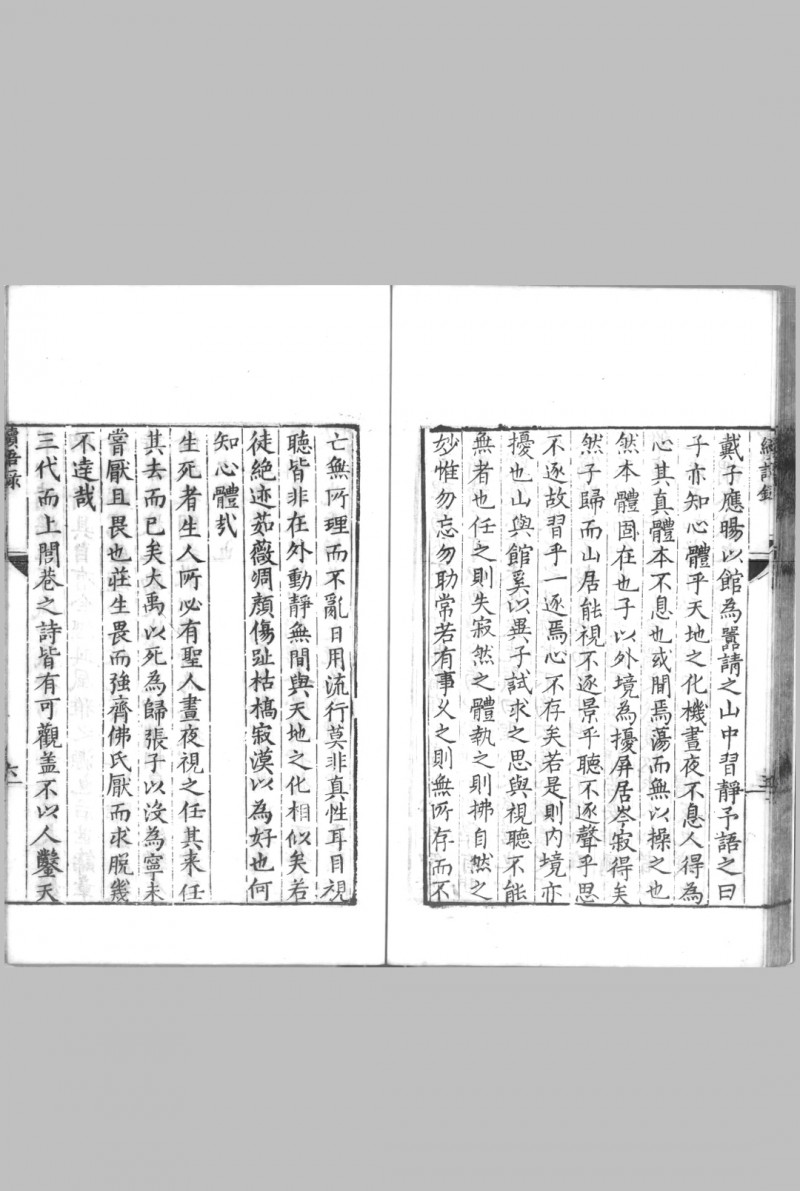 戴子應暘以館為囂請之山中習靜予語之曰
子亦知心體乎天地之化機晝夜不息人得為
心其真體本不息也或閒焉蕩而無以操之也
然本體固在也子以外境為擾屏居岑寂得矣
然子歸而山居能視不逐景乎聽不逐聲乎思
不逐故習乎一逐焉心不存矣若是則內境亦
擾也山與館奚以異子試求之思與視聽不能
無者也任之則失寂然之體執之則拂自然之
妙惟勿忘勿助常若有事乂之則無所存而不
亡無所理而不亂日用流行莫非真性耳目視
聽皆非在外動靜無間與天地之化相似矣若
徒絶迹茹薇凋顏傷趾枯槁寂漠以為好也何
知心體㢤
生死者生人所必有聖人晝夜視之任其來任
其去而已矣大禹以死為歸張子以沒為寧未
嘗厭且畏也莊生畏而強齊佛氏厭而求脫幾
不達哉
三代而上閭巷之詩皆有可觀盖不以人鑿天
六